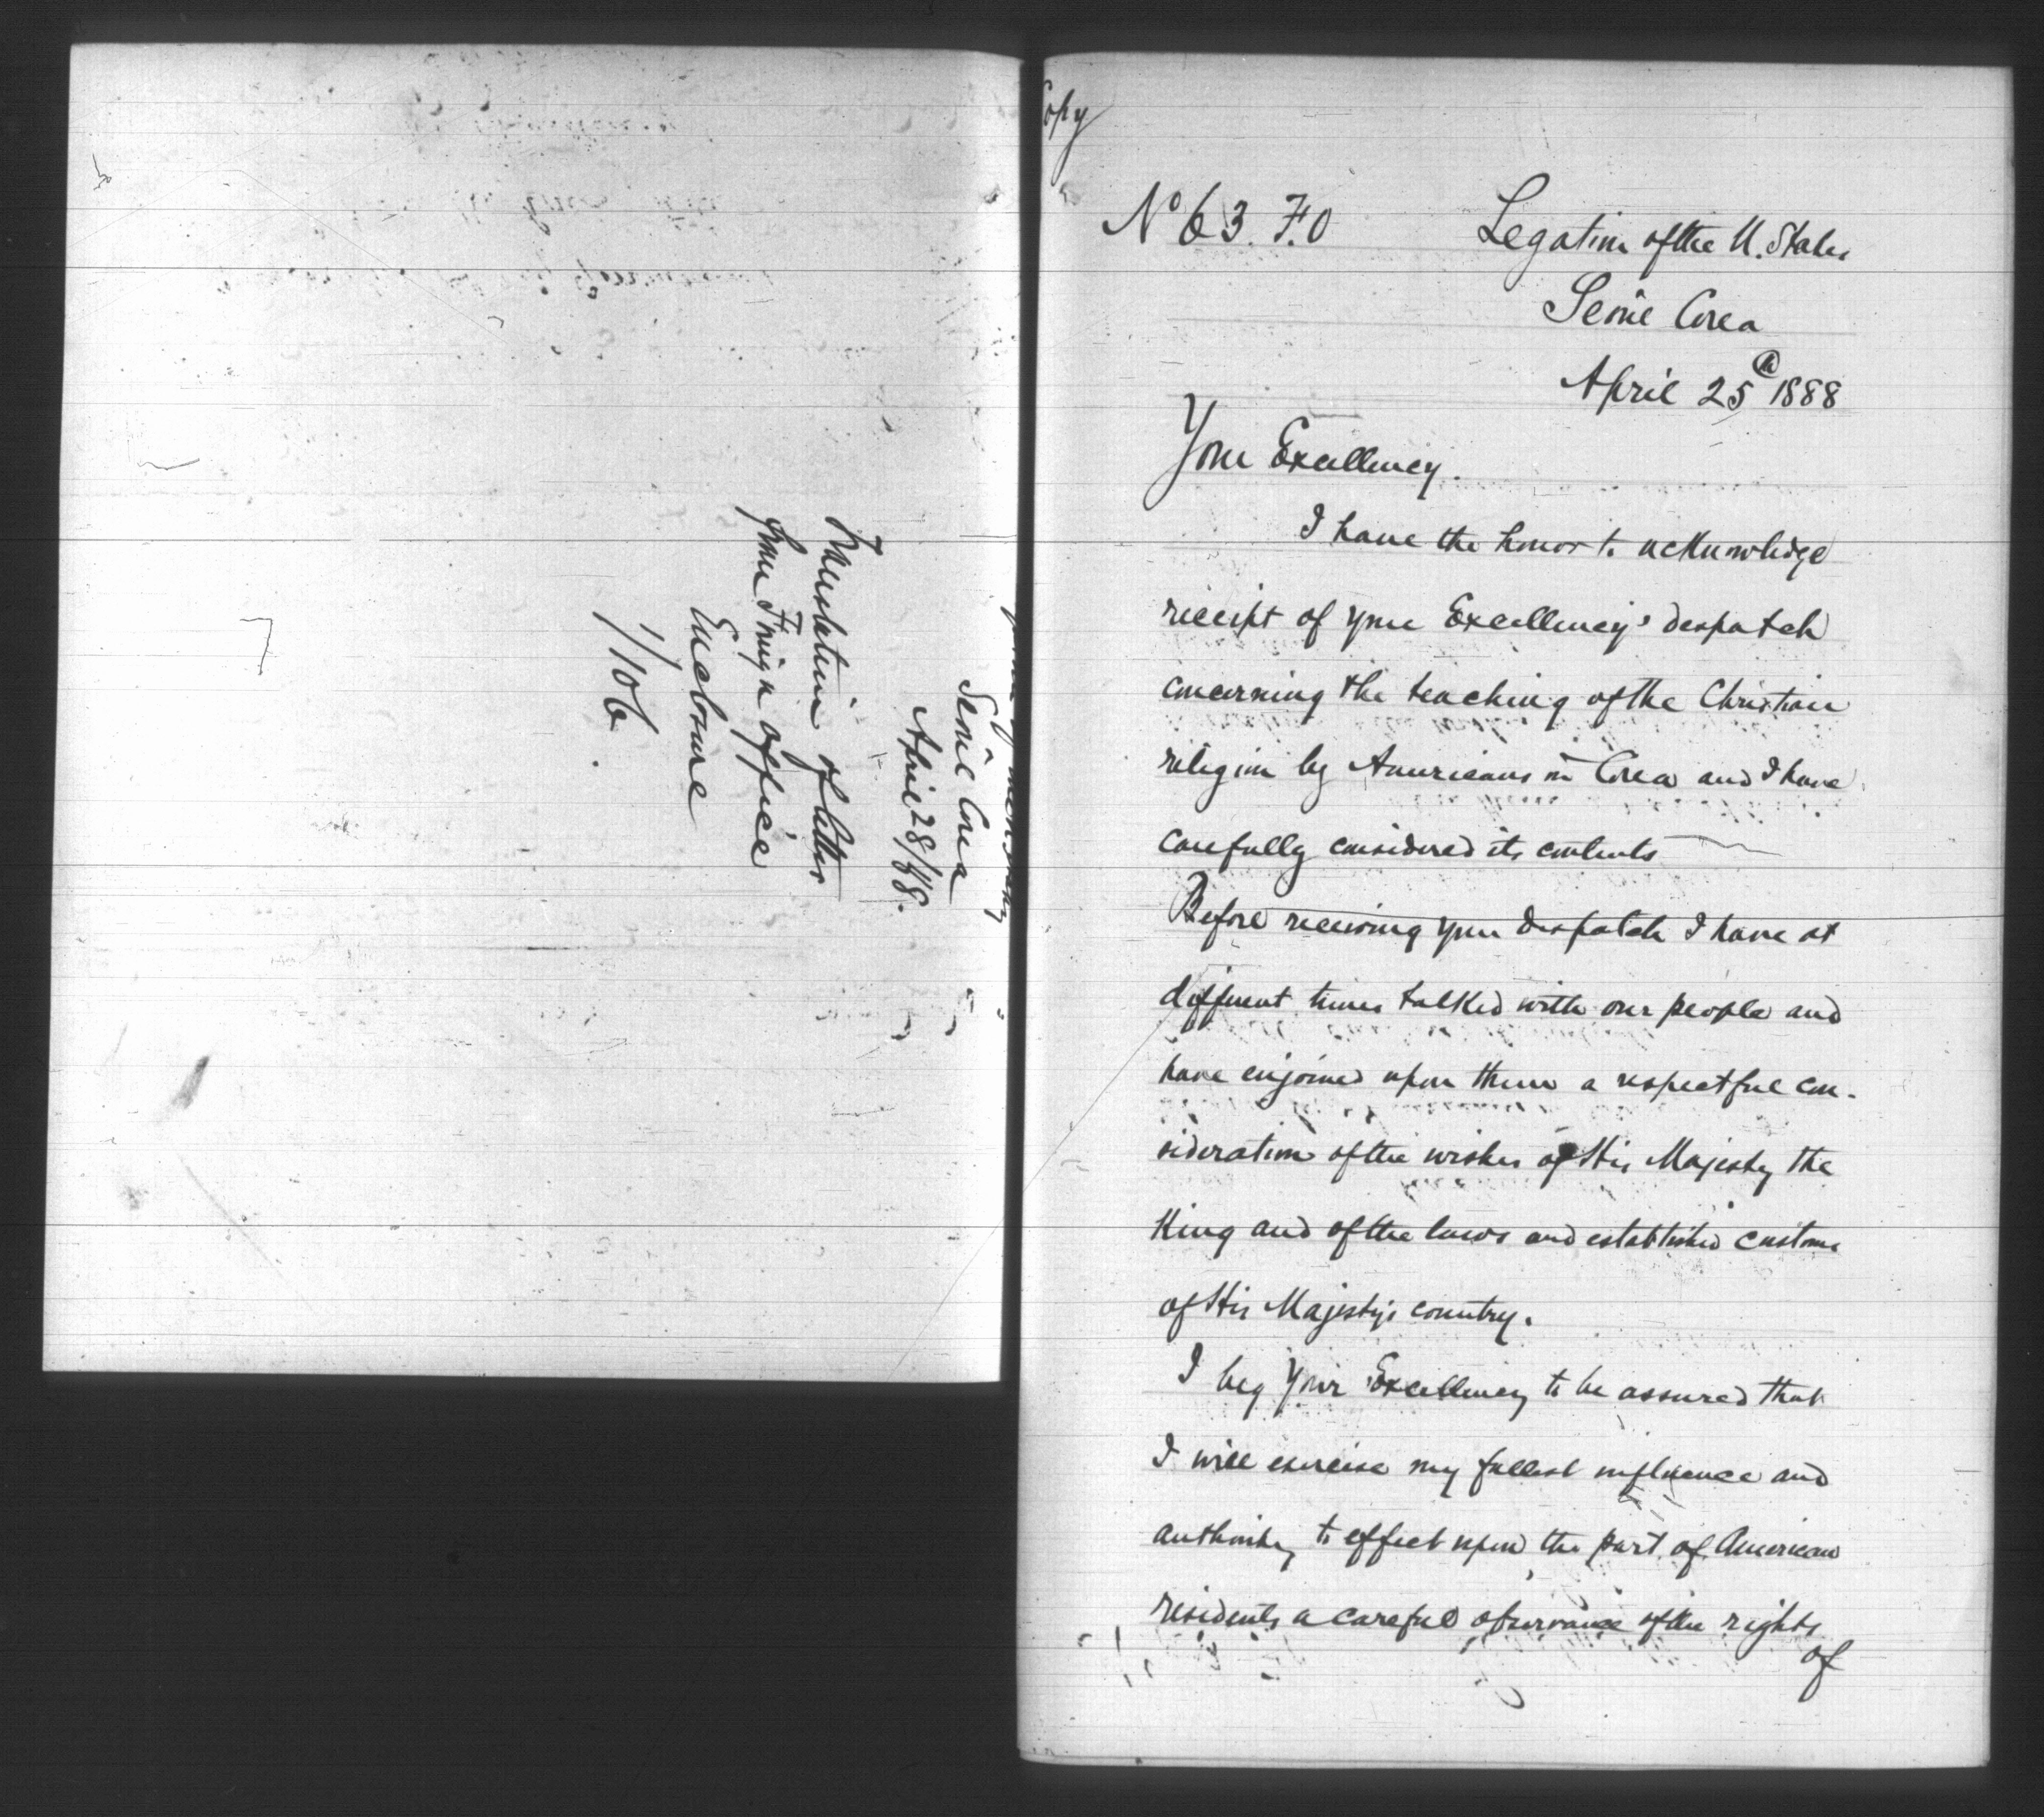 Seoúl Corea
April 28/88.
Translation of letter
from Foreign Office
Enclosure
1/106.
Copy
Nº 63. F.O
Legation of the U. States
Seoúl Corea
April 25th 1888
Your Excellency.
I have the honor to acknowledge
receipt of your Excellency's despatch
concerning the teaching of the Christian
religion by Americans in Corea and I have
carefully considered its contents
Before receiving your despatch I have at
different times talked with our people and
have enjoined upon them a respectful con-
sideration of the wishes of His Majesty the
King and of the laws and established customs
of His Majesty's country.
I beg Your Excellency to be assured that
I will exercise my fullest influence and
authority to effect upon the part of American
residents a careful observance of the rights
of